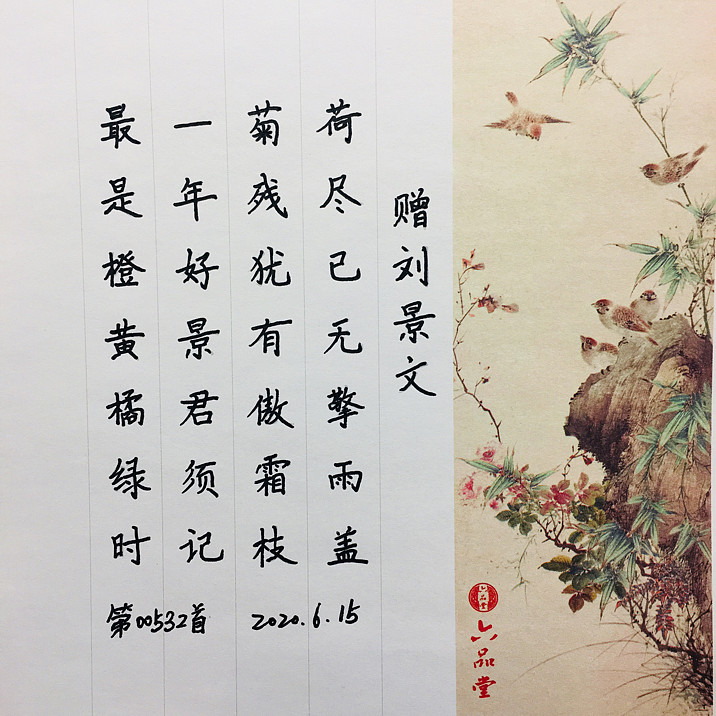 赠刘景文
荷尽已无擎雨盖
菊残犹有傲霜枝
一年好景君须记
最是橙黄橘绿时
第00532首
2020.6.15
六品堂
六品堂